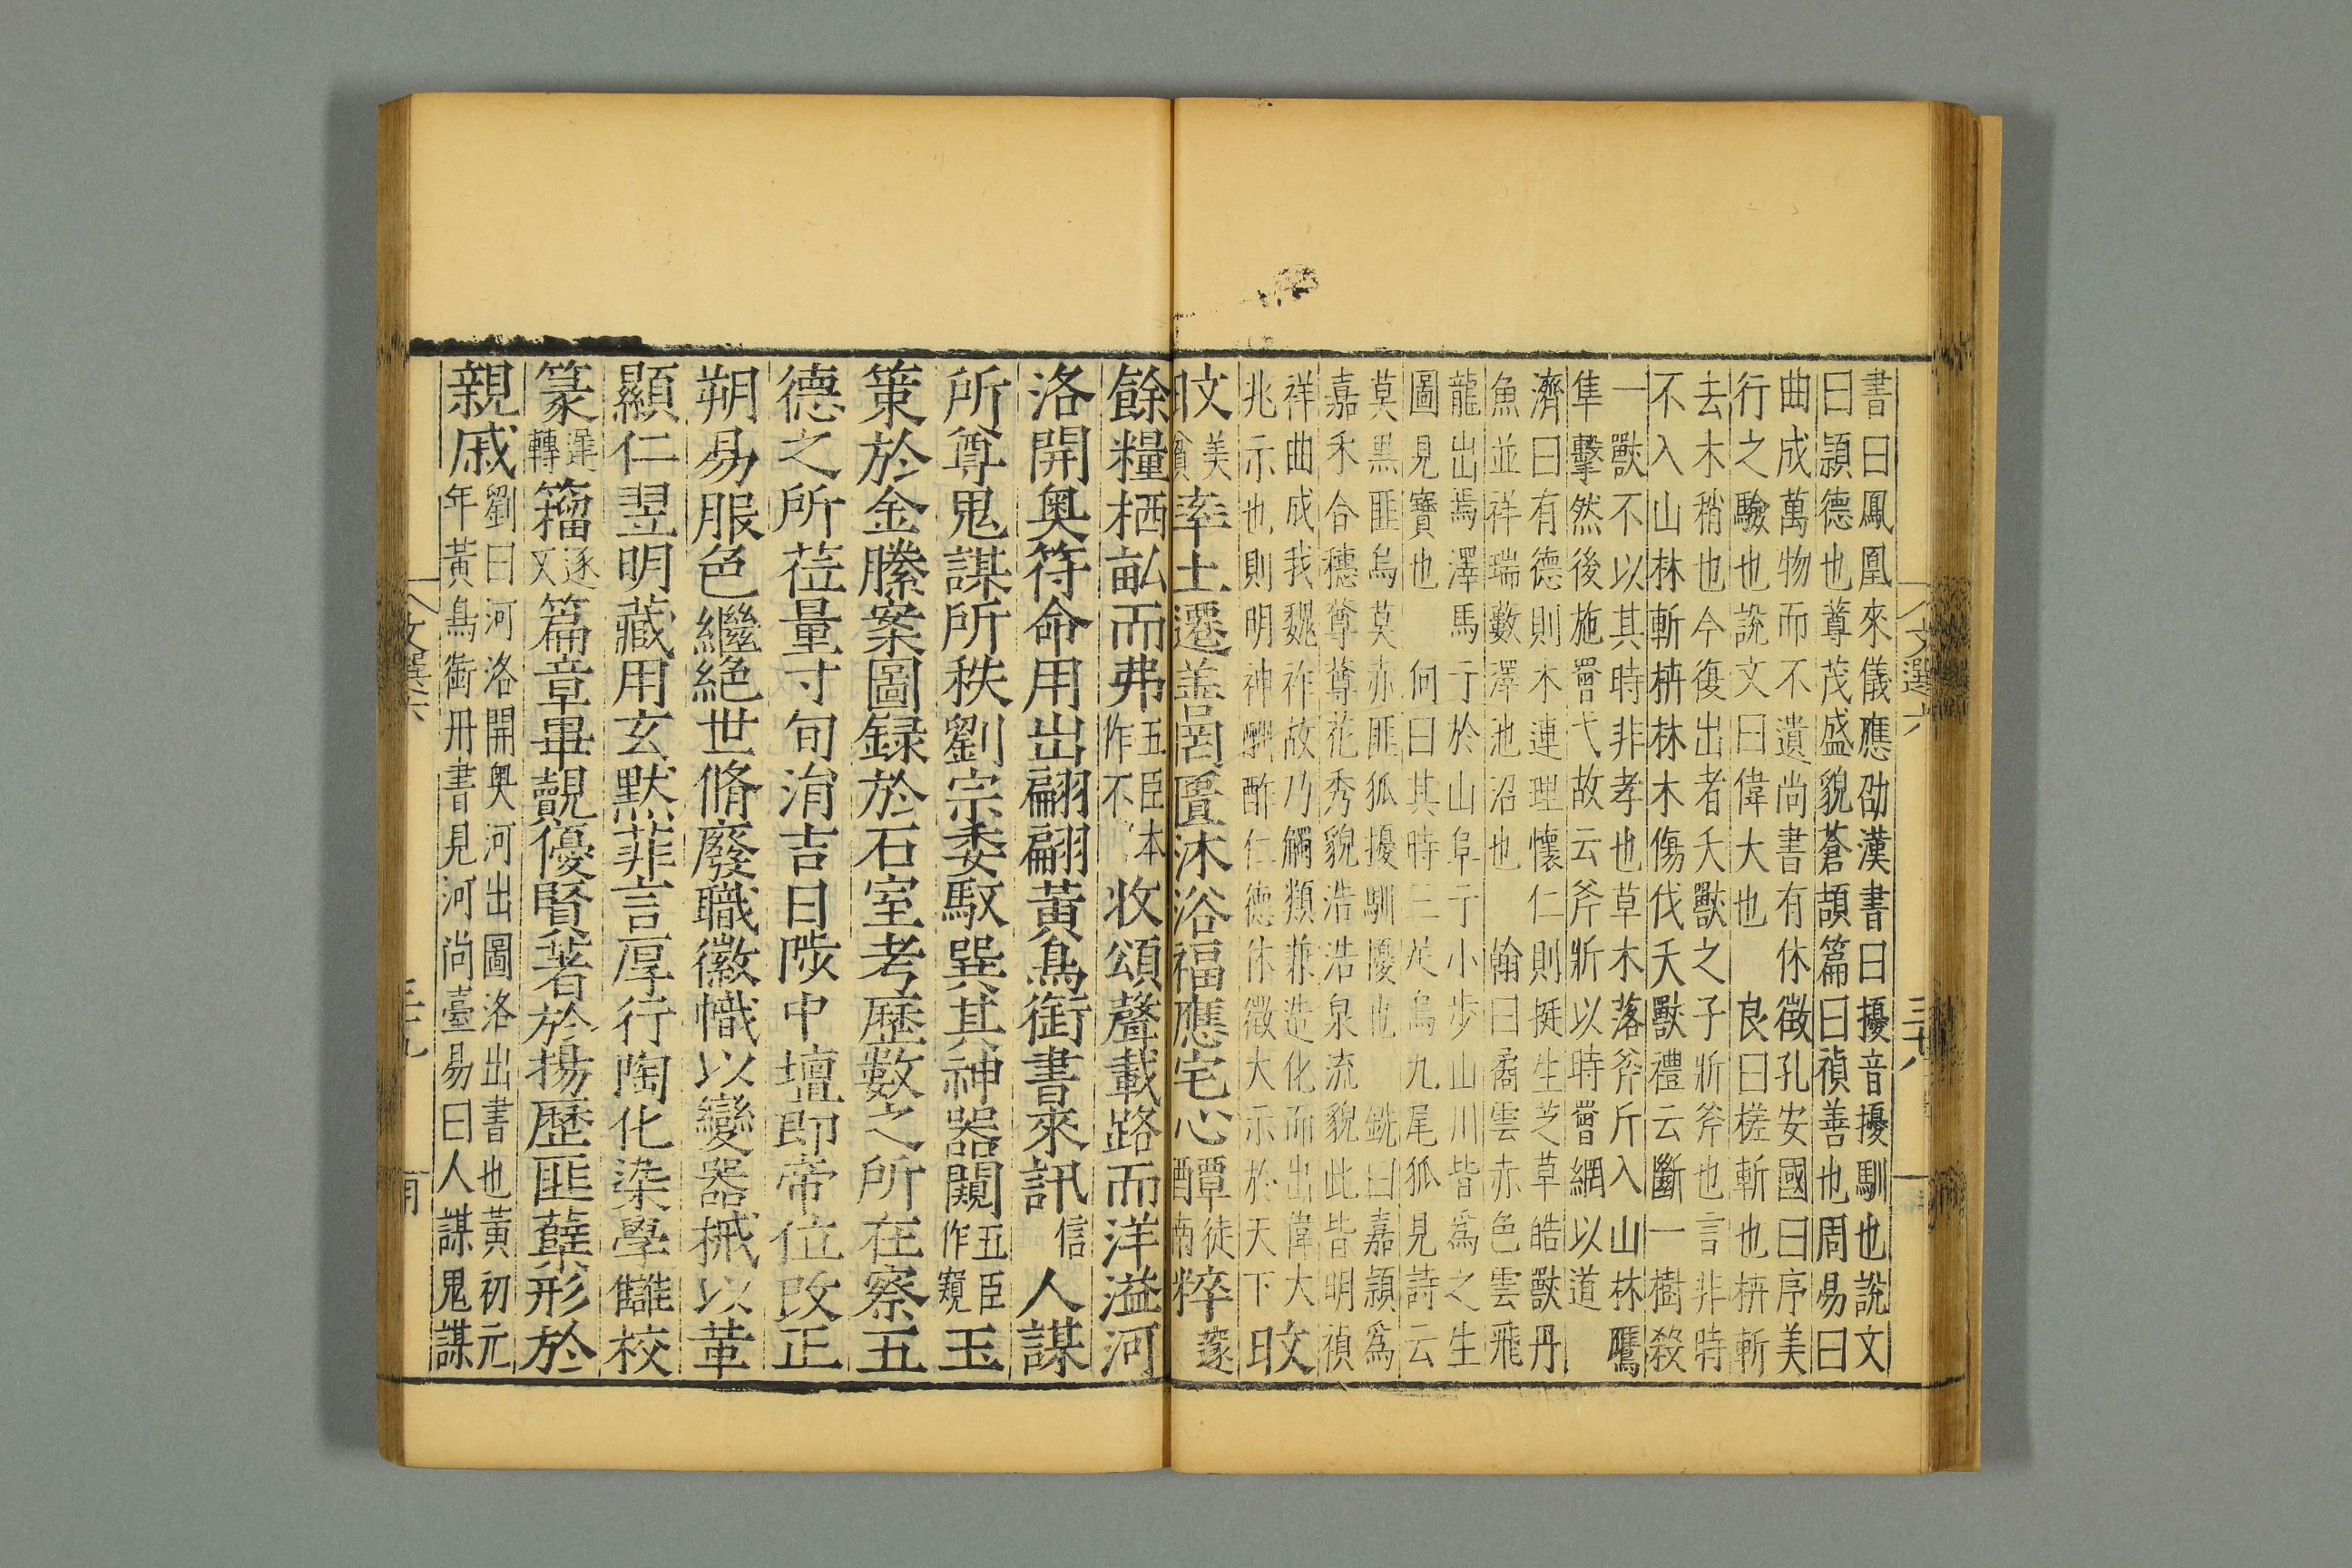 書曰鳳凰來儀應劭漢書曰擾音擾馴也說文
曰頴德也蓴茂盛貌蒼頡篇曰禎善也周易曰
曲成萬物而不遺尚書有休徵孔安國曰序美
行之驗也說文曰偉大也 良曰槎斬也枿斬
去木稍也今復出者夭獸之子斨斧也言非時
不入山林斬枿林木傷伐夭獸禮云斷一樹殺
一獸不以其時非孝也草木落斧斤入山林鷹
隼擊然後施罾弋故云斧斨以時罾網以道
濟曰有德則木連理懷仁則挺生芝草皓獸丹
魚並祥瑞藪澤池沼也 翰曰矞雲赤色雲飛
龍出焉澤馬亍於山阜亍小步山川皆為之生
圖見寶也 向曰其時三足烏九尾狐見詩云
莫黒匪烏莫赤匪狐擾馴也 銑曰嘉頴為
嘉禾合穗蓴蓴花秀貌浩浩泉流貌此皆明禎
祥曲成我魏祚故乃觸類兼造化而出偉大
兆示也則明神酬酢仁德休徵大示於天下
旼
旼美貧率土遷善罔匱沐浴福應宅心醰徒南粹遂
餘糧栖畝而弗五臣本作不收頌聲載路而洋溢河
洛開奥符命用出翩翩黄鳥銜書來訊信人謀
所尊鬼謀所秩劉宗委馭巽其神器闚五臣作窺玉
策於金縢案圖録於石室考歷數之所在察五
德之所莅量寸旬涓吉日陟中壇即帝位改正
朔易服色繼絶世脩廢職徽幟以變器械以革
顯仁翌明藏用玄默菲言厚行陶化染學讎校
篆遅轉籀逐又篇章畢覿優賢著於揚歷匪孽形於
親戚
劉曰河洛開奥河出圖洛出書也黃初元
年黃鳥銜冊書見河尚臺易曰人謀鬼謀
文選六 三十八
文選六 三十九